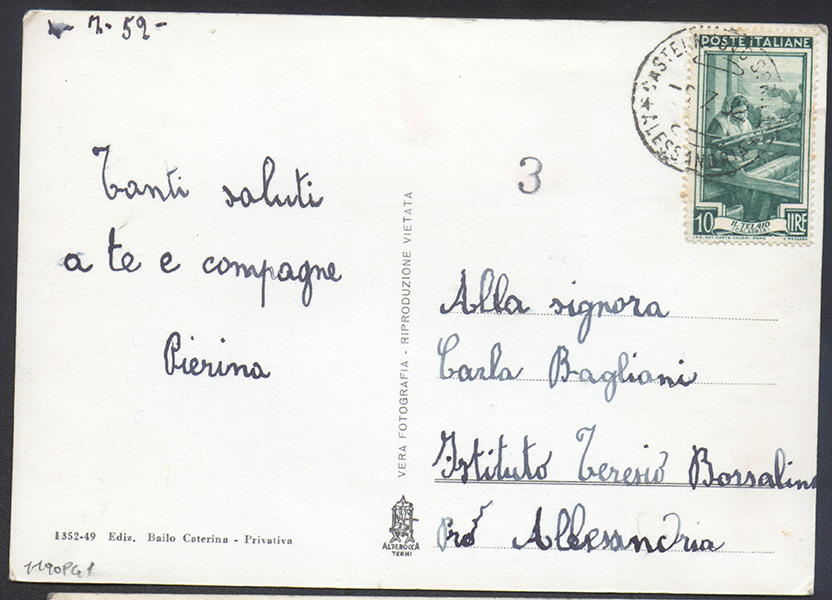 - 7 - 52 -
Tanti saluti
a te e compagne
Pierina
1352-49 Ediz. Bailo Caterina - Privativa
VERA FOTOGRAFIA - RIPRODUZIONE VIETATA
ALTEROCCA
TERNI
3
POSTE ITALIANE
10 LIRE
IL TELAIO
Alla signora
Carla Bagliani
Istituto Teresio Borsalino
Alessandria